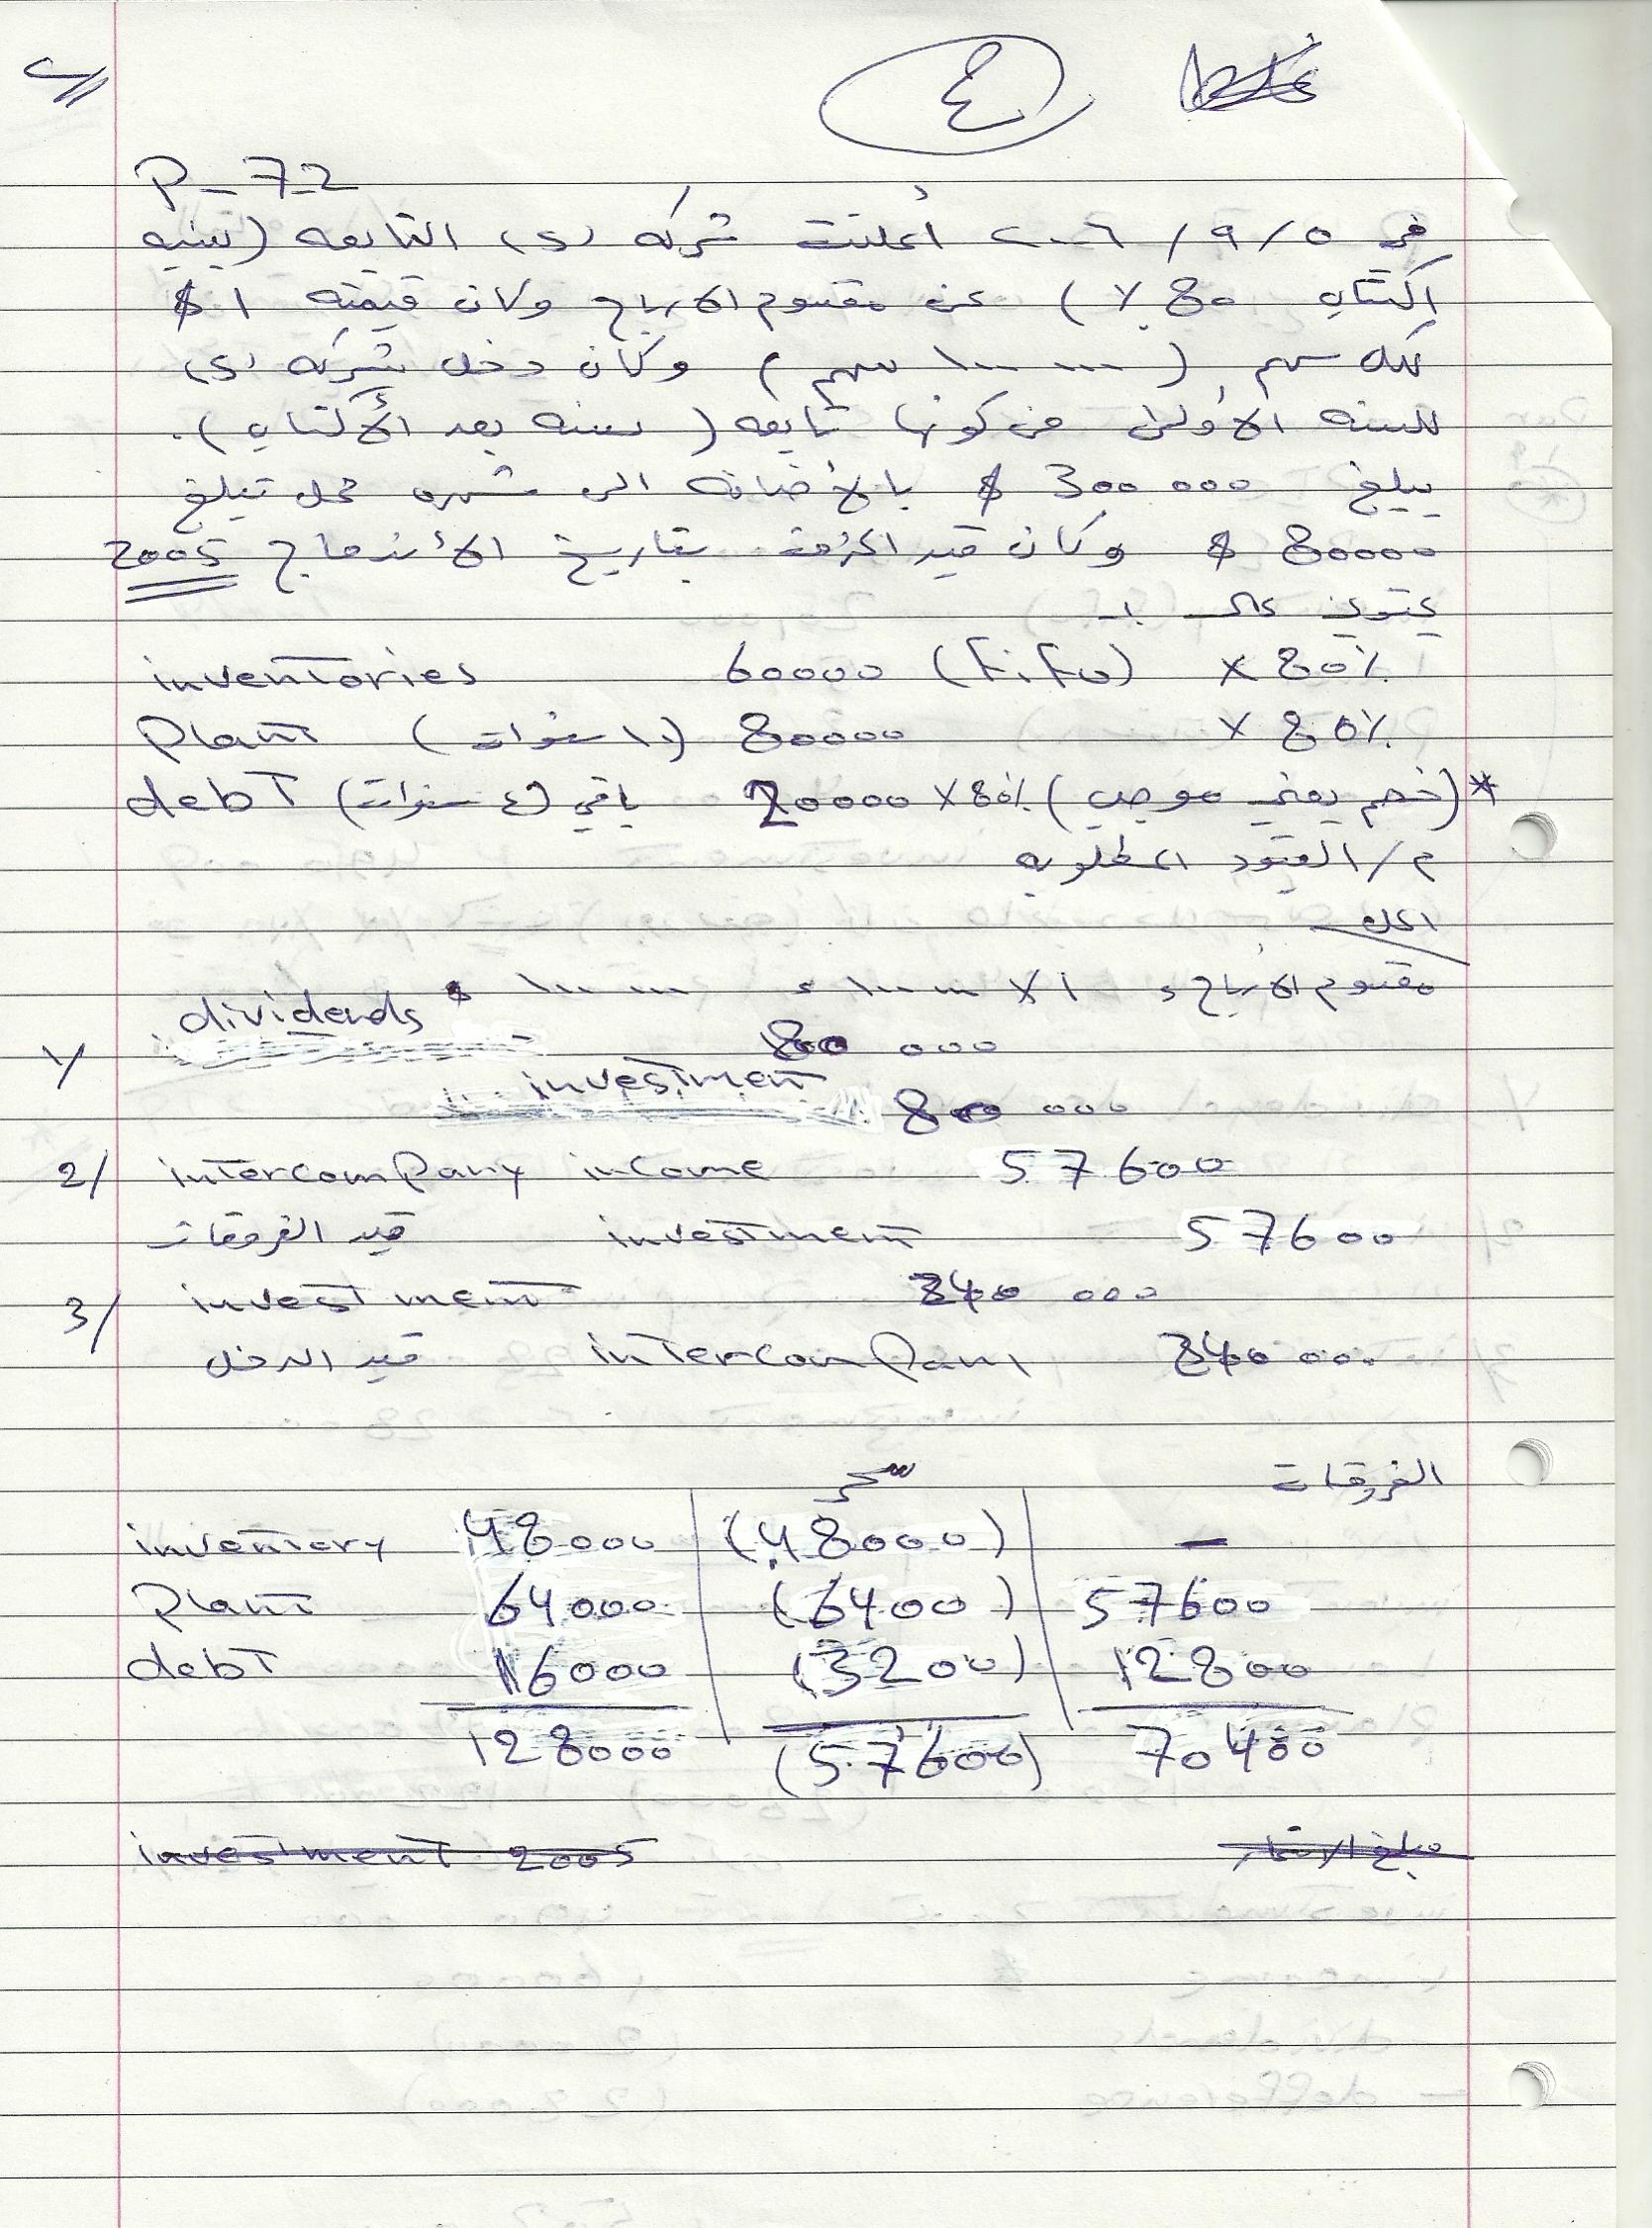 ٤
P-7-2
في ٥ / ٩ / ٢٠٠٦ أعلنت شركه (s) التابعه (بنسبه
اكتتاب 80 %) عن مقسوم الارباح وكان قيمته ١ $
لكل سهم (١٠٠٠٠٠ سهم) وكان دخل شركه (s)
للسنه الاولى من كونها تابعه (سنه بعد الأكتتاب).
يبلغ 300 000 $ بالأضافه الى شهره محل تبلغ
80000 $ وكان قيد بتاريخ الأندماج 2005
يحتوي على :-
inventories 60000 (FiFo) x 80%
Plant (١٠ سنوات) 80000 x 80%
debt (٤ سنوات) باقي 20000 x 80% (خصم يعني موجب) *
م/ القيود المطلوبه
الحل
مقسوم الارباح = ١ x ١٠٠٠٠٠ = ١٠٠٠٠٠ $
1/ dividends 80 000
investment 80 000
2/ intercompany income 57600
قيد الفروقات investment 57600
3/ investment 240 000
قيد الدخل intercompany 240 000
الفروقات
inventory 48000 (48000) –
Plant 64000 (6400) 57600
debt 16000 (3200) 12800
128000 (57600) 70400
investment 2005